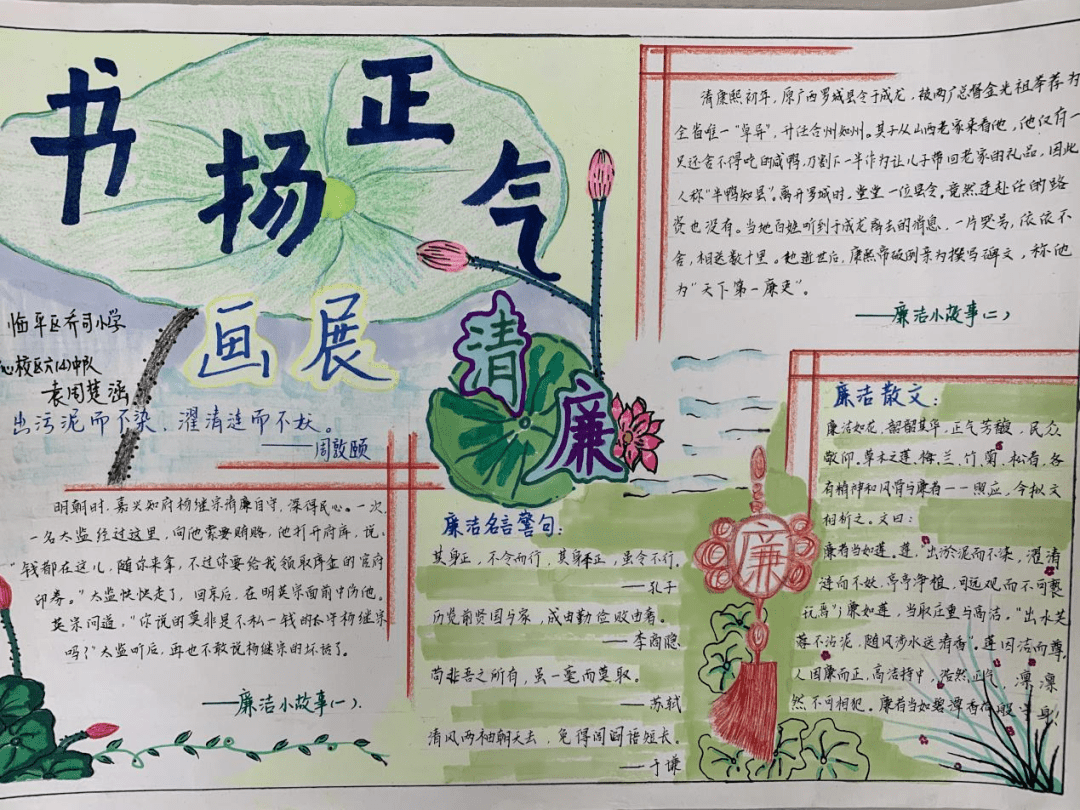 书扬正气
画展
清廉
临平区乔司小学
心校区六(4)中队
袁周楚涵
出污泥而不染、濯清涟而不妖。
——周敦颐
明朝时,嘉兴知府杨继宗清廉自守,深得民心。一次,
一名太监经过这里,向他索要贿赂,他打开府库,说:
“钱都在这儿,随你来拿,不过你要给我领取库金的官府
印券。”太监怏怏走了,回京后,在明英宗面前中伤他。
英宗问道:“你说的莫非是不私一钱的太守杨继宗
吗?”太监听后,再也不敢说杨继宗的坏话了。
——廉洁小故事(一)
廉洁名言警句:
其身正,不令而行,其身不正,虽令不行。
——孔子
历览前贤国与家,成由勤俭败由奢。
——李商隐
苟非吾之所有,虽一毫而莫取。
——苏轼
清风两袖朝天去,免得闾阎话短长。
——于谦
清康熙初年,原广西罗城县令于成龙,被两广总督金光祖举荐为
全省唯一“卓异”,升任合州知州。其子从山西老家来看他,他仅有一
只还舍不得吃的咸鸭,刀割下一半作为让儿子带回老家的礼品,因此
人称“半鸭知县”。离开罗城时,堂堂一位县令,竟然连赴任的路
资也没有。当地百姓听到于成龙离去的消息,一片哭号,依依不
舍,相送数十里。他逝世后,康熙帝破例亲为撰写碑文,称他
为“天下第一廉吏”。
——廉洁小故事(二)
廉
廉洁散文:
廉洁如花,韶韶其华,正气芳馥,民众
敬仰。草木之莲、梅、兰、竹、菊、松者,各
有精神和风骨与廉者一一照应,今拟文
相祈之。文曰:
廉者当如莲。莲,“出淤泥而不染,濯清
涟而不妖,亭亭净植,可远观而不可亵
玩焉”;廉如莲,当取庄重与高洁。“出水芙
蓉不沾泥,随风涉水送清香。”莲因洁而尊,
人因廉而正,高洁持中,浩然正气,凛凛
然不可相犯。廉者当如碧潭香荷般